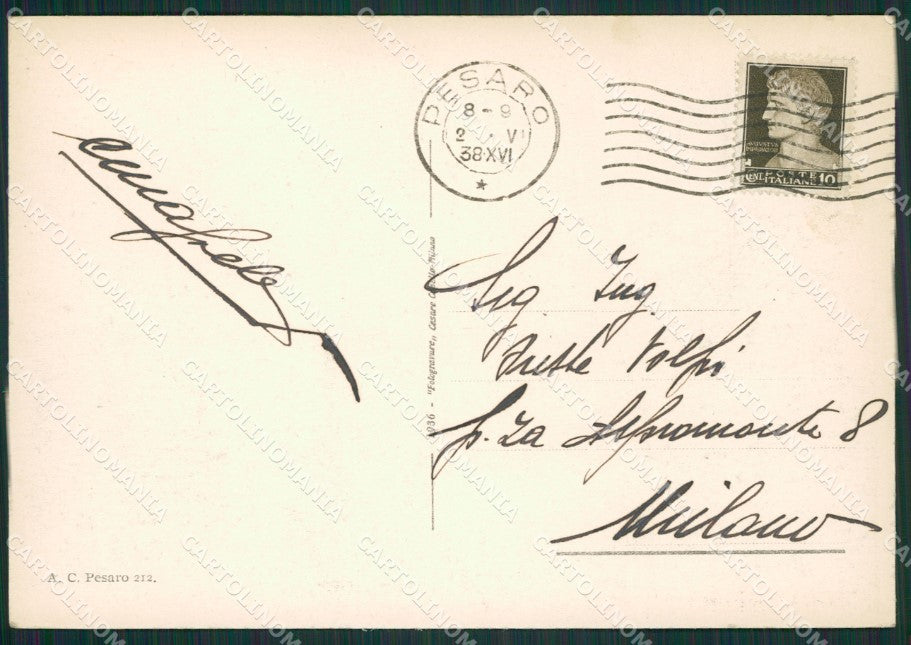 PESARO
8-9
2 · VI
38·XVI
AVGVSTVS
CENT. POSTE ITALIANE 10
Sig Ing.
Volpi
P.za Aspromonte 8
Milano
1936 - "Fotogravure„ Cesare Milano
A. C. Pesaro 212.
CARTOLINOMANIA